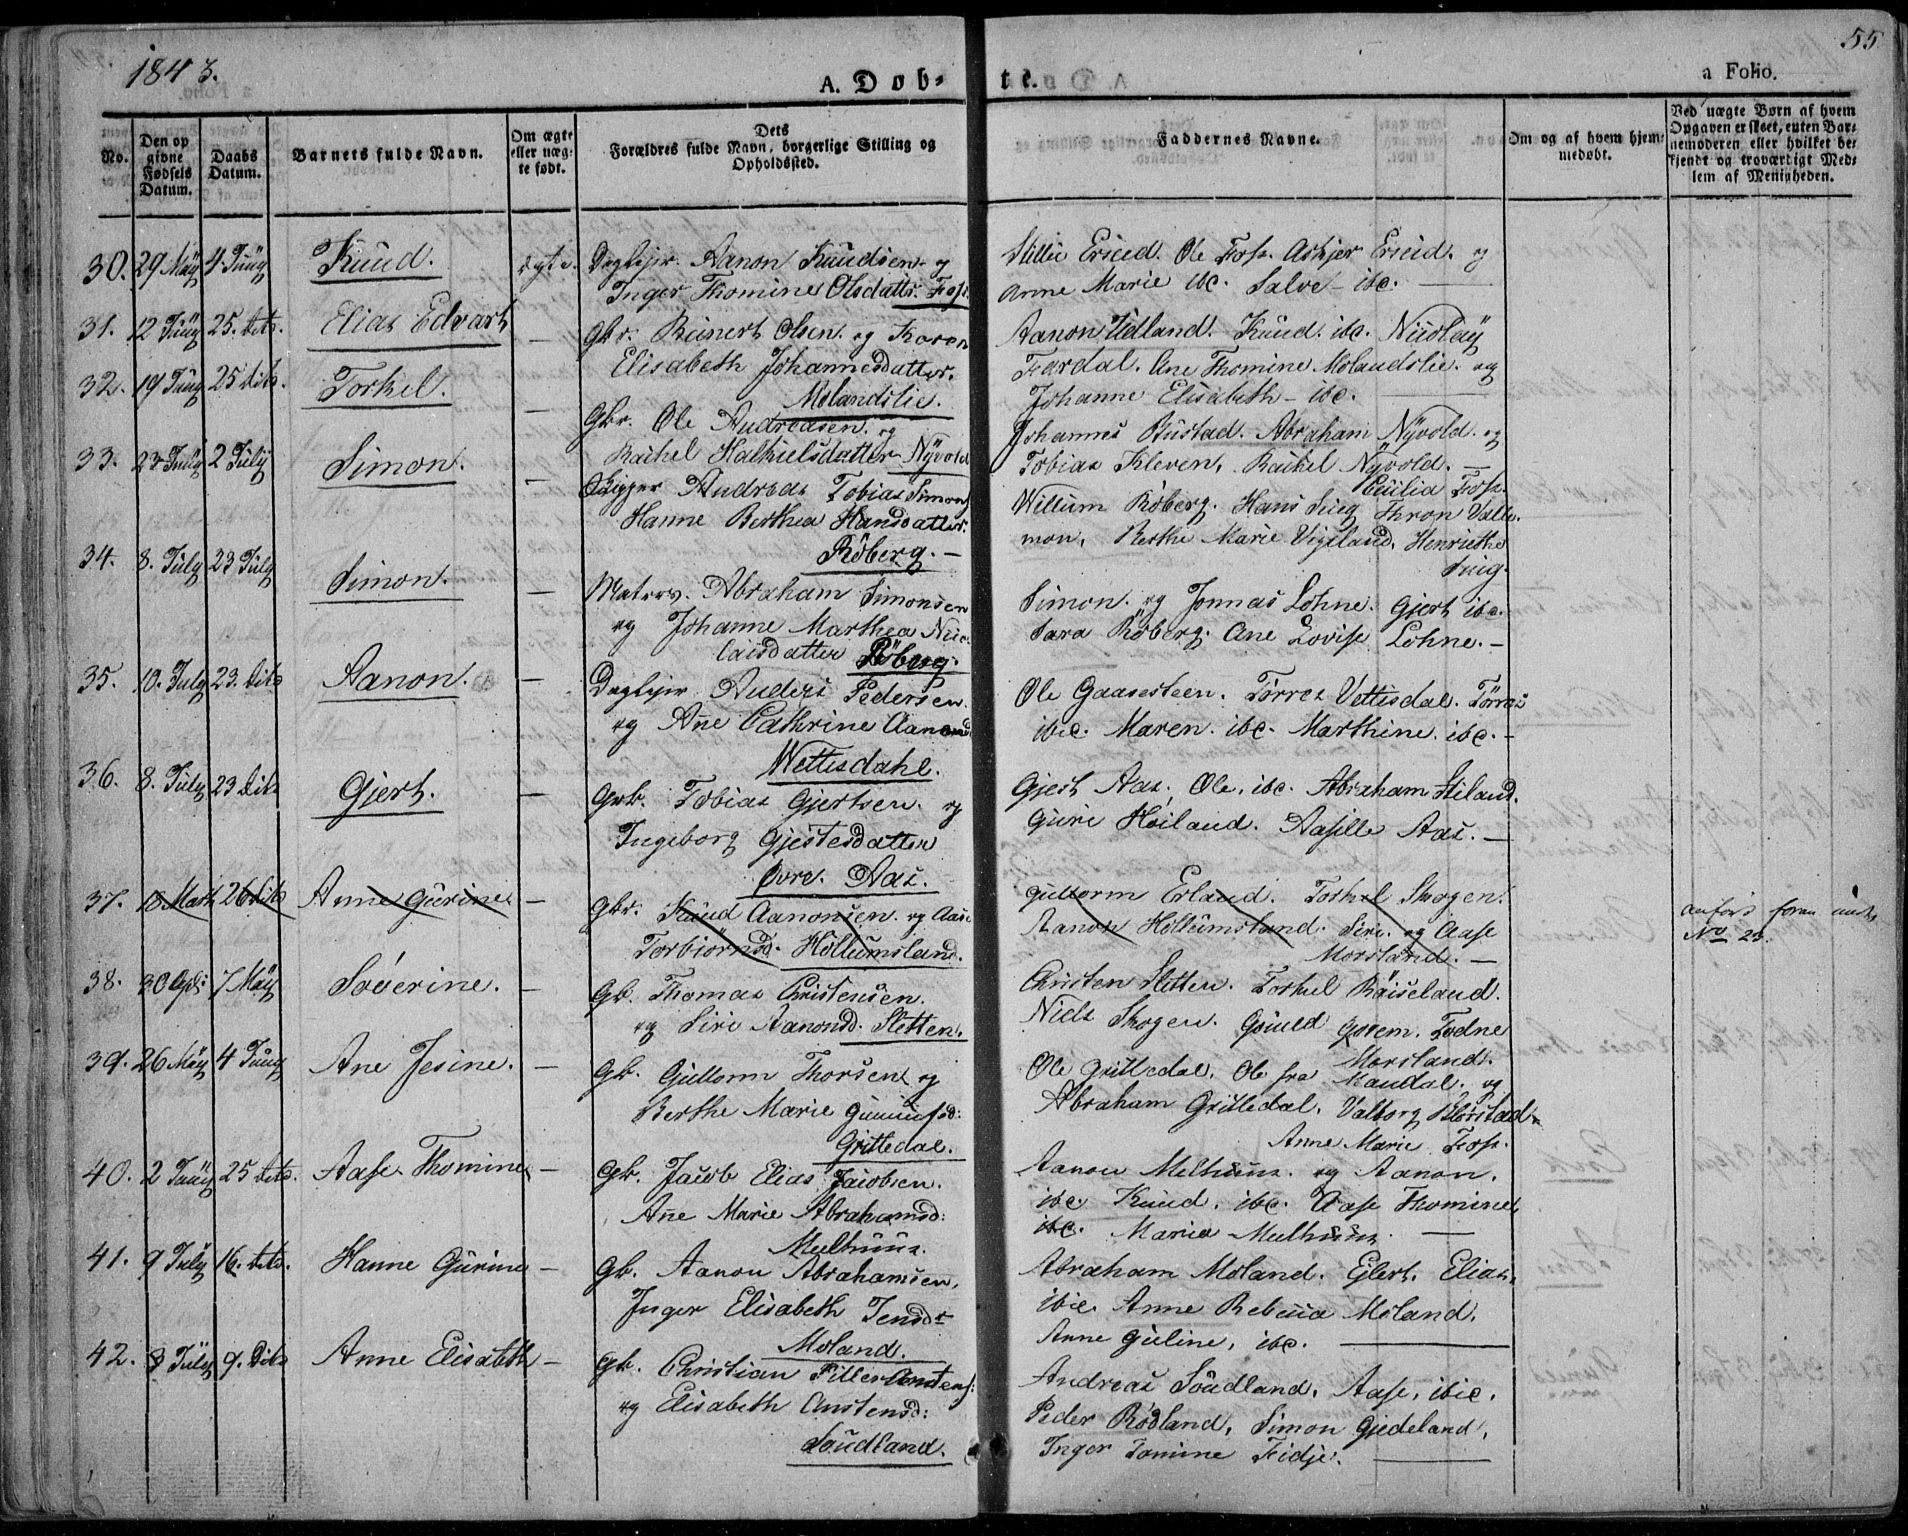 1843.
55
A. Døb-
te.
a Folio.
No.
Den op
givne
Fødsels
Datum.
Daabs
Datum.
Barnets fulde Navn.
Om ægte
eller uæg-
te født.
Dets
Forældres fulde Navn, borgerlige Stilling og
Opholdssted.
Faddernes Navne.
Om og af hvem hjem-
medøbt.
Ved uægte Børn af hvem
Opgaven er skeet, enten Bar-
nemoderen eller hvilket be-
kjendt og troværdigt Med-
lem af Menigheden.
30. 29 Maÿ 4 Junÿ Knud. ægte.
Aanon Knudsen og
Inger Thomine Olsdattr. Foss
Ole Foss. Asbjer og
Anne Marie ibc. Salve ibc.
31. 12 Junÿ 25. dito. Elias Edvart —
Gbr. Reinert Olsen og Karen
Elisabeth Johannesdatter.
Molandslie.
Aanon Udland. Knud. ibc. Nicolaÿ
Fardal. Ane Thomine Molandslie. og
Johanne Elisabeth ibc.
32. 19 Junÿ 25 dito. Torkel. —
Gbr. Ole Andreasen. og
Rachel Nÿvold
Johannes Abraham Nÿvold. og
Tobias Kleven. Rachel Nÿvold. —
33. 2 Julÿ Simon. —
Andreas Tobias Simons
Hanne Berthea Hansdatter.
Röberg. —
Cecilia Foss.
Willum Röberg. Hans Thron Valle.
mon. Berthe Marie Vigeland. Henriethe
34. 8. Julÿ 23 Julÿ Simon. —
Matros. Abraham Simonsen
og Johanne Marthea Nic-
laisdatter Röberg.
Simon. og Jonnas Lohne. Gjert ibc.
Sara Röberg. Ane Lovise Lohne. —
35. 10. Julÿ 23. dito Aanon. —
Anders Pedersen
og Añe Cathrine
Wettisdahl.
Ole Gaasesteen. Tørres Vettisdal. Tørres
ibic. Maren. ibc. Marthine. ibc. —
36. 8. Julÿ 23 dito Gjert. —
Gbr. Tobias Gjertsen. og
Ingeborg Gjestesdatter
Øvre. Aas.
Gjert Aas. Ole. ibc. Abraham Stiland.
Guri Høiland. Aasille Aas. —
37. 18 Marts 26 dito Anne Gurine —
Gbr. Knud Aanonsen. og Aase
Torbjørnsd. Höllumsland.
Guttorm Erland. Torkel Skogen.
Aanon Höllumsland. Siri. og Aase
Morsland. —
anført foran under
No 23.
38. 30 Apr: 7 Maÿ Søverine. —
Gb. Thomas Christensen.
og Siri Aanonsd. Sletten.
Christen Sletten. Torkel Röiseland.
Niels Skogen. Todne
Morsland.
39. 26 Maÿ 4 Junÿ Ane Jesine. —
Gb. Guttorm Thorsen og
Berthe Marie
Grittedal.
Ole Grittedal. Ole fra Mandal. og
Abraham Grittedal. Valborg
Anne Marie Foss.
40. 2 Junÿ 25 dito. Aase Thomine —
Gb. Jacob Elias Jacobsen.
Añe Marie Abrahamsd:
Melhuus.
Aanon Melhuus. og Aanon.
ibc. Knud. ibc. Aase Thomine
ibc. Maria Melhuus.
41. 9 Julÿ 16. dito. Hanne Gurine —
Gb. Aanon Abrahamsen.
Inger Elisabeth Jensdr
Moland.
Abraham Moland. Eilert. Elias.
ibic. Anne Rebecca Moland.
Anne Guline, ibc.
42. 3 Julÿ 9. dito Anne Elisabeth —
Gb. Christian
og Elisabeth Austensd:
Soudland.
Andreas Soudland. Aase, ibic.
Peder Rødland, Simon Gjedeland,
Inger Tomine Fidje.